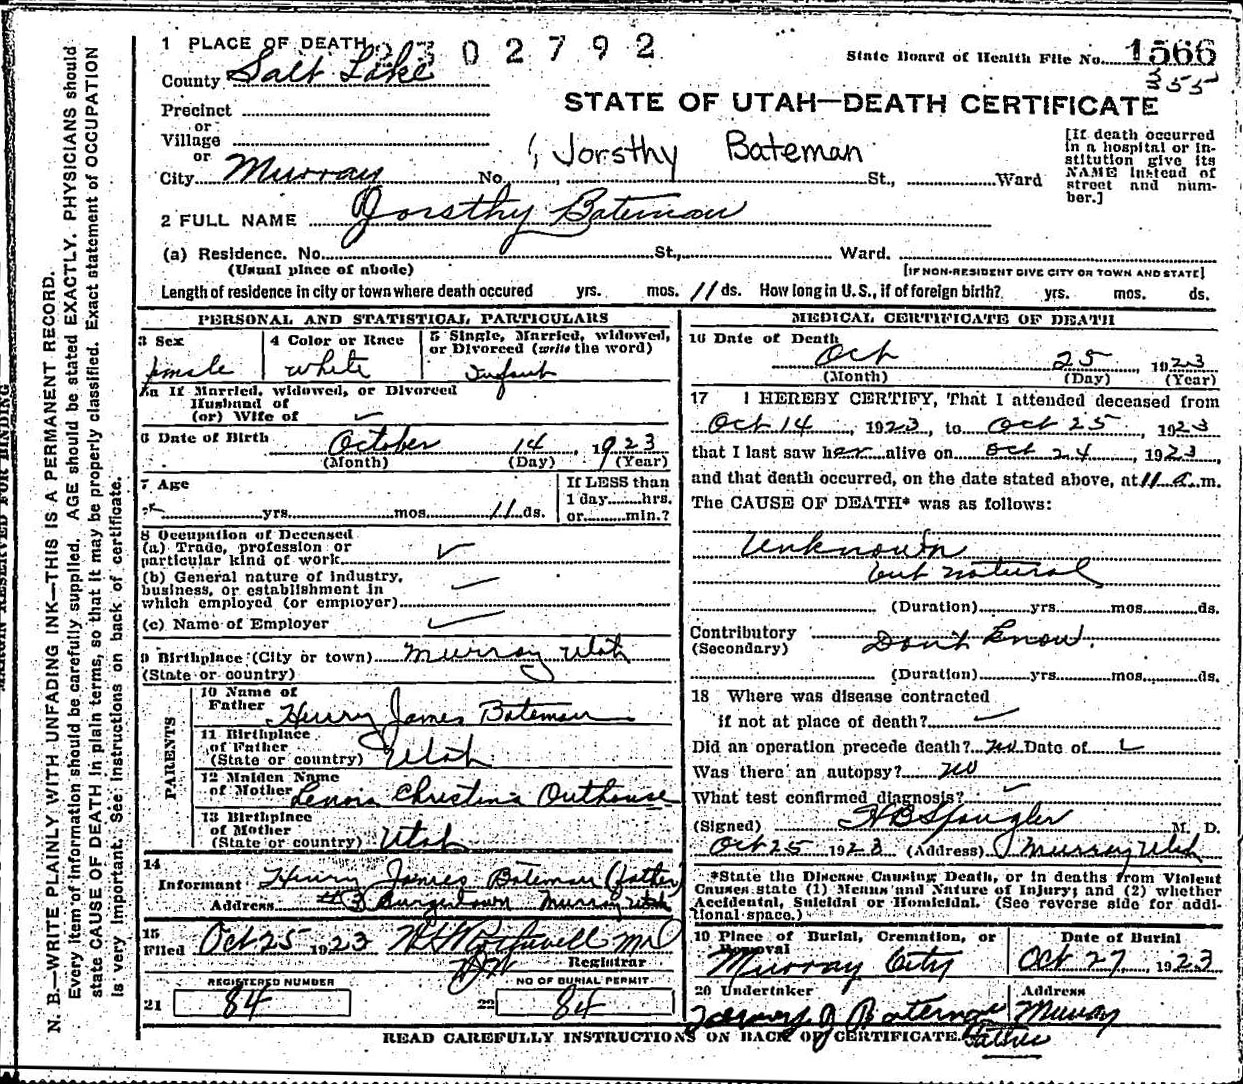 1 PLACE OF DEATH 2302792
State Board of Health File No. 1566
355
County Salt Lake
STATE OF UTAH—DEATH CERTIFICATE
Precinct
or
Village
or
City Murray No. , Jorsthy Bateman St., Ward
[If death occurred in a hospital or institution give its NAME instead of street and number.]
2 FULL NAME Jorsthy Bateman
(a) Residence. No. St., Ward.
(Usual place of abode) [IF NON-RESIDENT GIVE CITY OR TOWN AND STATE]
Length of residence in city or town where death occured yrs. mos. 11 ds. How long in U. S., if of foreign birth? yrs. mos. ds.
PERSONAL AND STATISTICAL PARTICULARS
3 Sex female
4 Color or Race white
5 Single, Married, widowed, or Divorced (write the word) Infant
5a If Married, widowed, or Divorced
Husband of
(or) Wife of
6 Date of Birth October 14, 1923
(Month) (Day) (Year)
7 Age yrs. mos. 11 ds.
If LESS than
1 day hrs.
or min.?
8 Occupation of Deceased
(a) Trade, profession or
particular kind of work
(b) General nature of industry,
business, or establishment in
which employed (or employer)
(c) Name of Employer
9 Birthplace (City or town) Murray Utah
(State or country)
PARENTS
10 Name of
Father Henry James Bateman
11 Birthplace
of Father
(State or country) Utah
12 Maiden Name
of Mother Lenora Christina Outhouse
13 Birthplace
of Mother
(State or country) Utah
14
Informant Henry James Bateman (father)
Address #3 Burgertown Murray Utah
15
Filed Oct 25 1923
Registrar
REGISTERED NUMBER
21 84
NO OF BURIAL PERMIT
22 84
MEDICAL CERTIFICATE OF DEATH
16 Date of Death
Oct 25, 1923
(Month) (Day) (Year)
17 I HEREBY CERTIFY, That I attended deceased from
Oct 14, 1923, to Oct 25, 1923
that I last saw her alive on Oct 24, 1923,
and that death occurred, on the date stated above, at 11 a. m.
The CAUSE OF DEATH* was as follows:
Unknown
but natural
(Duration) yrs. mos. ds.
Contributory Don't know.
(Secondary)
(Duration) yrs. mos. ds.
18 Where was disease contracted
if not at place of death?
Did an operation precede death? No Date of
Was there an autopsy? No
What test confirmed diagnosis?
(Signed) H B Spangler M. D.
Oct 25 1923 (Address) Murray Utah
*State the Disease Causing Death, or in deaths from Violent
Causes state (1) Means and Nature of Injury; and (2) whether
Accidental, Suicidal or Homicidal. (See reverse side for additional space.)
19 Place of Burial, Cremation, or
Removal
Murray City
Date of Burial
Oct 27, 1923
20 Undertaker
Henry J Bateman
Father
Address
Murray
READ CAREFULLY INSTRUCTIONS ON BACK OF CERTIFICATE.
MARGIN RESERVED FOR BINDING
N. B.—WRITE PLAINLY WITH UNFADING INK—THIS IS A PERMANENT RECORD.
Every item of information should be carefully supplied. AGE should be stated EXACTLY. PHYSICIANS should
state CAUSE OF DEATH in plain terms, so that it may be properly classified. Exact statement of OCCUPATION
is very important. See instructions on back of certificate.